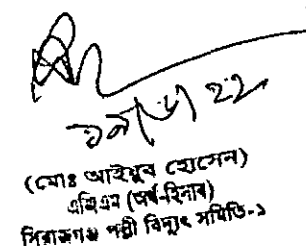 (মোঃ আইয়ুব হোসেন)
এজিএম (অর্থ-হিসাব)
সিরাজগঞ্জ পল্লী বিদ্যুৎ সমিতি-১